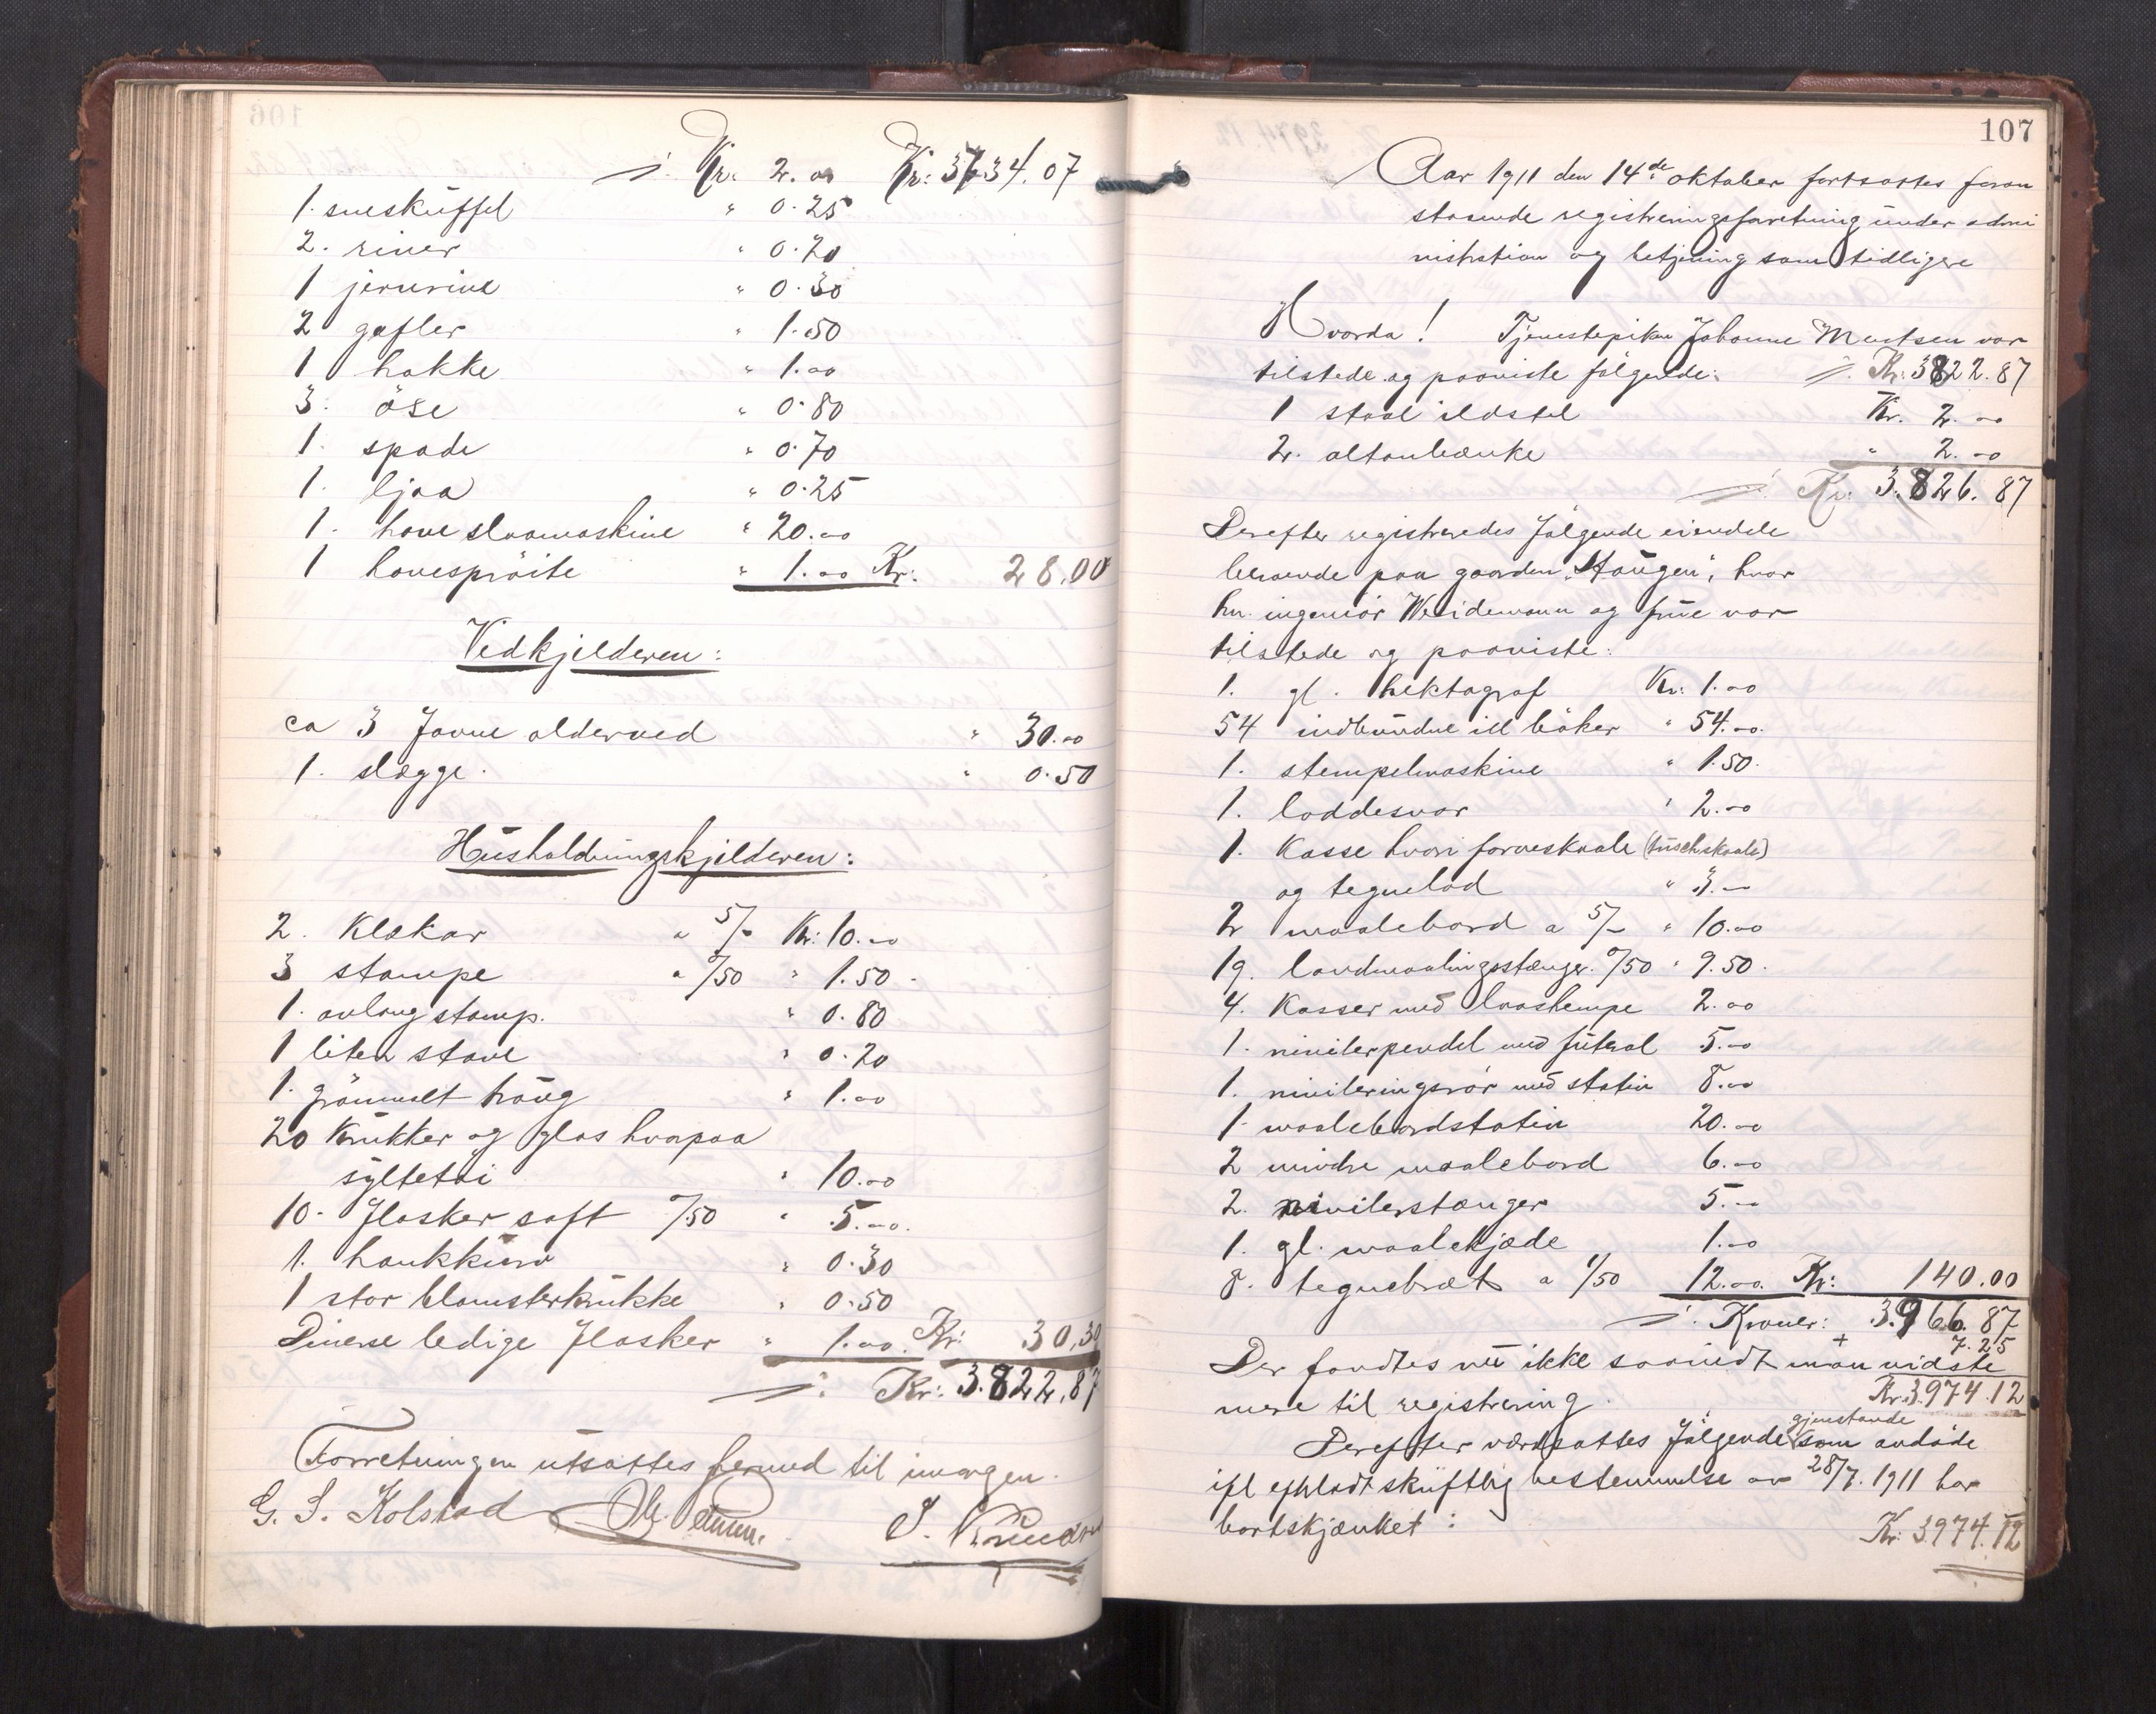 ÷ Kr. 2.00 Kr: 3734.07
1. sneskuffel " 0.25
2. river " 0.20
1 jernrive " 0.30
2 gafler " 1.50
1 hakke " 1.00
3. öse " 0.80
1. spade " 0.70
1. ljaa " 0.25
1. have slaamaskine " 20.00
1 havespröite " 1.00 Kr: 28.00
Vedkjelderen:
ca 3 favne olderved " 30.00
1. slægge. " 0.50
Husholdningskjelderen:
2. Klskar a 5/- Kr: 10.00
3 stampe a 0/50 " 1.50
1. avlang stamp. " 0.80
1 liten stave " 0.20
1. grönmalt traug " 1.00
20 Krukker og glas hvorpaa
syltetöi " 10.00
10. flasker saft 0/50 " 5.00.
1. hankkurv " 0.30
1 stor blomsterkrukke " 0.50
Diverse ledige flasker " 1.00 Kr: 30,30
÷ Kr: 3.822,87
Forretningen utsattes herved til imorgen.
G. S. Kolstad
107
Aar 1911 den 14de oktober fortsattes foran
staaende registreringsforretning under admi
nistration og betjening som tidligere
Hvorda! Tjenestepiken Johanne Madsen var
tilstede og paaviste følgende: ÷ Kr: 3822.87
1 staal ildstel Kr. 2.00
2. altanbænke " 2.00
÷ Kr: 3.826.87
Derefter registreredes følgende eiendele
beroende paa gaarden "Haugen", hvor
hr. ingeniør Weidemann og frue var
tilstede og paaviste:
1. gl. hektograf Kr: 1.00
54 indbundne ill böker " 54.00.
1. stempelmaskine " 1.50.
1. loddesnor " 2.00
1. Kasse hvori farveskaale (tuschskaale)
og tegnelod " 3.-
2 maalebord a 5/- " 10.00
19. landmaalingsstænger. 0/50 " 9.50.
4. Kasser med 2.00
1. nivilerpendel med futeral 5.00
1. nivileringsrör med stativ 8.00
1. maalebordstativ 20.00
2 mindre maalebord 6.00
2. nivilerstænger 5.-
1. gl. maalekjæde 1.00
8. tegnebræt a 1/50 12.00. Kr: 140.00
÷ Kroner: 3.966.87
+ 7.25
Der fandtes nu ikke saavidt man vidste
mere til registrering. Kr. 3.974.12
Derefter værdsattes følgende gjenstande som avdöde
ifl efterladt skriftlig bestemmelse av 28/7. 1911 har
bortskjænket: Kr: 3974.12